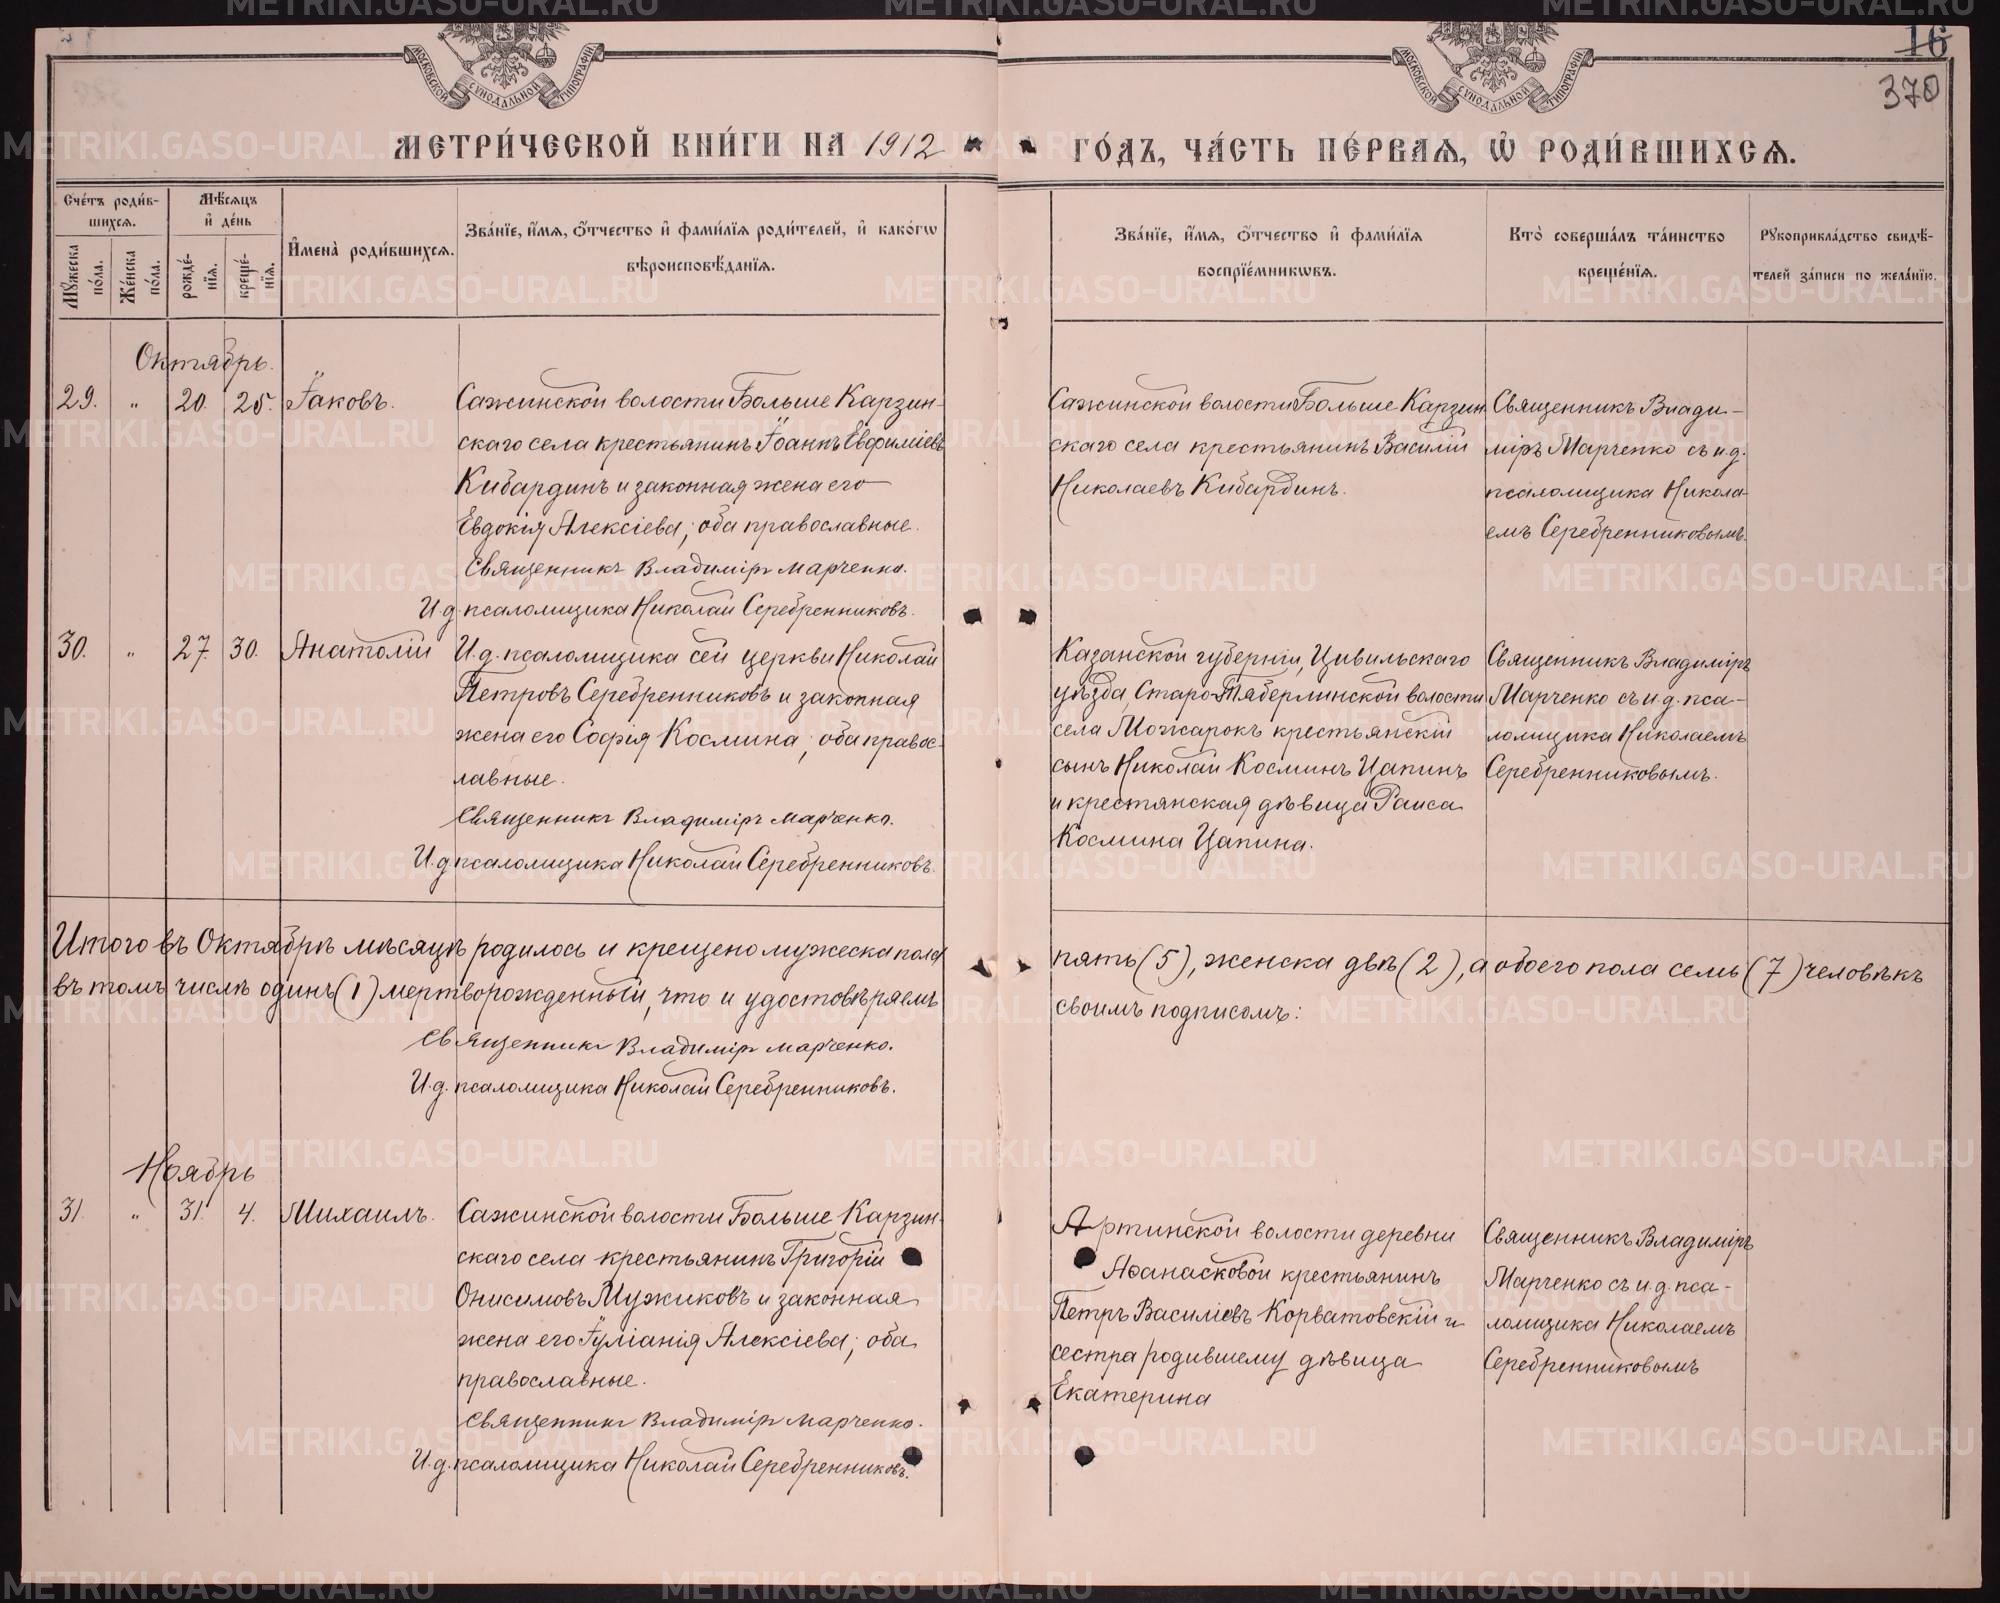 16
370
МОСКОВСКОЙ СѴНОДАЛЬНОЙ ТИПОГРАФІИ
МОСКОВСКОЙ СѴНОДАЛЬНОЙ ТИПОГРАФІИ
МЕТРИ́ЧЕСКОЙ КНИ́ГИ НА 1912 ГО́ДЪ, ЧА́СТЬ ПЕ́РВАѦ, Ѡ҆ РОДИ́ВШИХСѦ.
Сче́тъ роди́в-
шихсѧ.
Мꙋжеска по́ла.
Же́нска по́ла.
Мѣ́сѧцъ
и҆ де́нь
рожде́-
нїѧ.
креще́-
нїѧ.
И҆мена̀ роди́вшихсѧ.
Зва́нїе, и҆́мѧ, ѻ҆́тчество и҆ фами́лїѧ роди́телей, и҆ како́гѡ
вѣроисповѣ́данїѧ.
Зва́нїе, и҆́мѧ, ѻ҆́тчество и҆ фами́лїѧ
воспрїе́мникѡвъ.
Кто̀ соверша́лъ та́инство
креще́нїѧ.
Рꙋкоприкла́дство свидѣ́-
телей за́писи по жела́нїю.
Октябрь.
29. „ 20. 25. Іаковъ.
Сажинской волости Больше Карзин-
скаго села крестьянинъ Іоаннъ Евфиміевъ
Кибардинъ и законная жена его
Евдокія Алексіева; оба православные.
Священникъ Владиміръ Марченко.
И.д. псаломщика Николай Серебренниковъ.
Сажинской волости Больше Карзин
скаго села крестьянинъ Василій
Николаевъ Кибардинъ.
Священникъ Влади-
міръ Марченко съ и.д.
псаломщика Никола-
емъ Серебренниковымъ.
30. „ 27. 30. Анатолій
И.д. псаломщика сей церкви Николай
Петровъ Серебренниковъ и законная
жена его Софія Космина; оба правос-
лавные.
Священникъ Владиміръ Марченко.
И.д. псаломщика Николай Серебренниковъ.
Казанской губерніи, Цивильскаго
уѣзда, Старо-Тяберлинской волости
села Можарокъ крестьянскій
сынъ Николай Косминъ Цапинъ
и крестянская дѣвица Раиса
Космина Цапина.
Священникъ Владиміръ
Марченко съ и.д. пса-
ломщика Николаемъ
Серебренниковымъ.
Итого въ Октябрѣ мѣсяцѣ родилось и крещено мужеска пола пять (5), женска двѣ (2), а обоего пола семь (7) человѣкъ
въ томъ числѣ одинъ (1) мертворожденный, что и удостовѣряемъ своимъ подписомъ:
Священникъ Владиміръ Марченко.
И.д. псаломщика Николай Серебренниковъ.
Ноябрь
31. „ 31. 4. Михаилъ.
Сажинской волости Больше Карзин-
скаго села крестьянинъ Григорій
Онисимовъ Мужиковъ и законная
жена его Іуліанія Алексіева; оба
православные.
Священникъ Владиміръ Марченко.
И.д. псаломщика Николай Серебренниковъ.
Артинской волости деревни
Афанасковой крестьянинъ
Петръ Василіевъ Корватовскій и
сестра родившему дѣвица
Екатерина
Священникъ Владиміръ
Марченко съ и.д. пса-
ломщика Николаемъ
Серебренниковымъ
METRIKI.GASO-URAL.RU